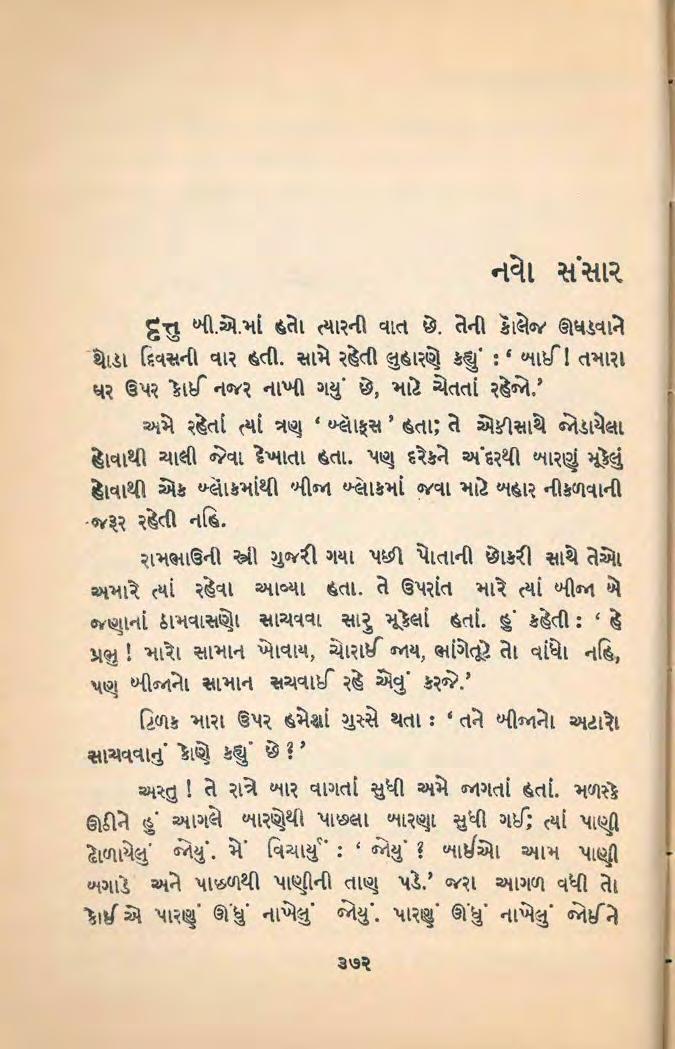 નવો સંસાર
દત્તુ બી.એ.માં હતો ત્યારની વાત છે. તેની કૉલેજ ઊઘડવાને
થોડા દિવસની વાર હતી. સામે રહેતી લુહારણે કહ્યું : ‘ બાઈ ! તમારા
ઘર ઉપર કોઈ નજર નાખી ગયું છે, માટે ચેતતાં રહેજો.’
અમે રહેતાં ત્યાં ત્રણ ‘ બ્લૉક્સ ’ હતા; તે એકીસાથે જોડાયેલા
હોવાથી ચાલી જેવા દેખાતા હતા. પણ દરેકને અંદરથી બારણું મૂકેલું
હોવાથી એક બ્લૉકમાંથી બીજા બ્લોકમાં જવા માટે બહાર નીકળવાની
જરૂર રહેતી નહિ.
રામભાઉની સ્ત્રી ગુજરી ગયા પછી પોતાની છોકરી સાથે તેઓ
અમારે ત્યાં રહેવા આવ્યા હતા. તે ઉપરાંત મારે ત્યાં બીજા બે
જણાનાં ઠામવાસણો સાચવવા સારુ મૂકેલાં હતાં. હું કહેતી : ‘ હે
પ્રભુ ! મારો સામાન ખોવાય, ચોરાઈ જાય, ભાંગેતૂટે તો વાંધો નહિ,
પણ બીજાનો સામાન સચવાઈ રહે એવું કરજે.’
ટિળક મારા ઉપર હમેશાં ગુસ્સે થતા : ‘ તને બીજાનો અટારો
સાચવવાનું કોણે કહ્યું છે ? ’
અસ્તુ ! તે રાત્રે બાર વાગતાં સુધી અમે જાગતાં હતાં. મળસ્કે
ઊઠીને હું આગલે બારણેથી પાછલા બારણા સુધી ગઈ; ત્યાં પાણી
ઢોળાયેલું જોયું. મેં વિચાર્યું : ‘ જોયું ? બાઈઓ આમ પાણી
બગાડે અને પાછળથી પાણીની તાણ પડે.’ જરા આગળ વધી તો
કોઈ એ પારણું ઊંધું નાખેલું જોયું. પારણું ઊંધું નાખેલું જોઈને
૩૭૨